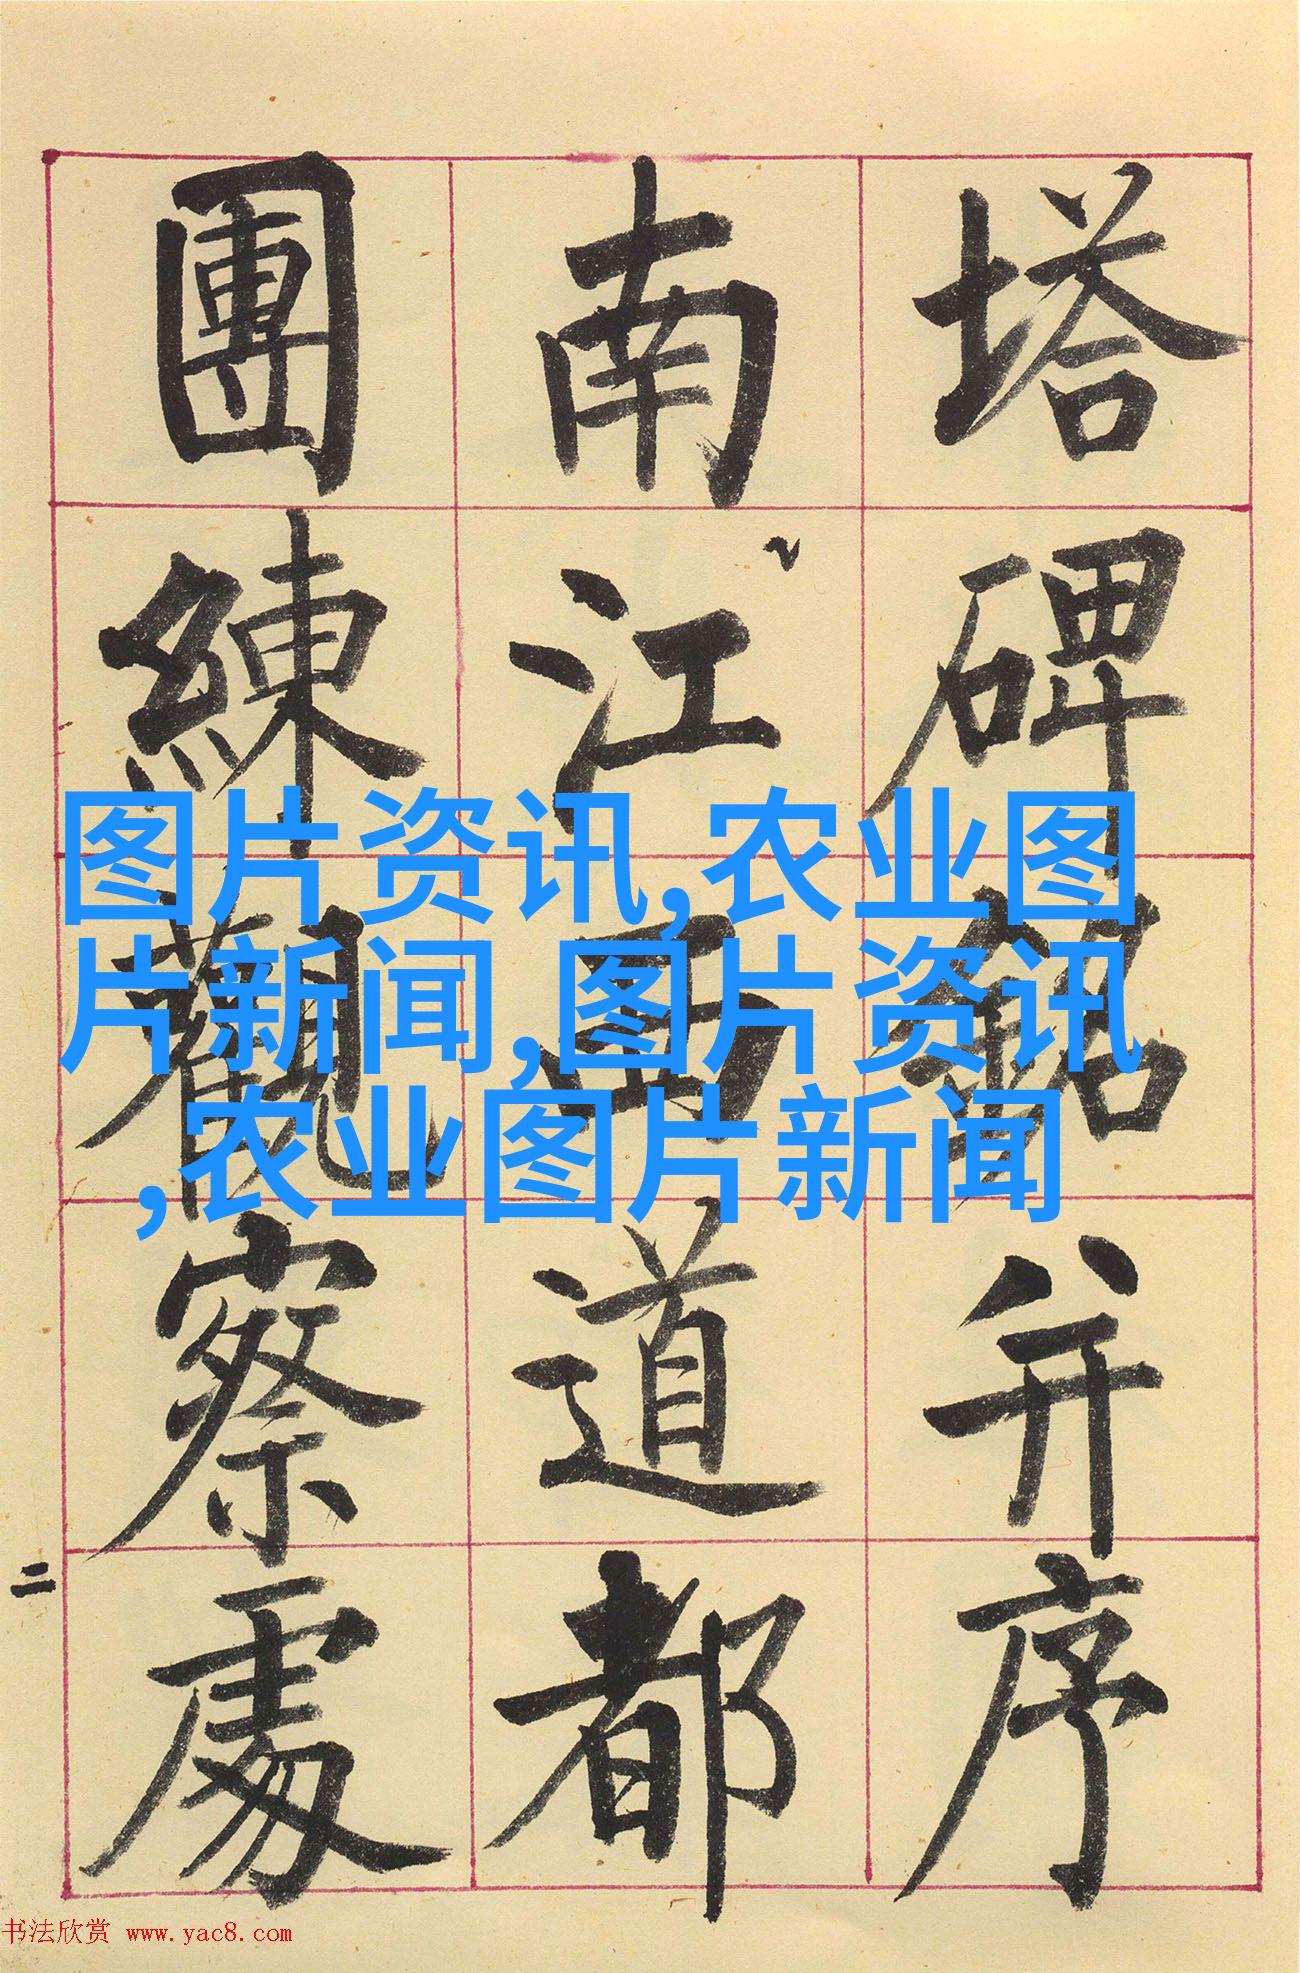 塔碑銘并序
南江西道都
團練觀察處
二
图片资讯,农业图
片新闻,图片资讯
,农业图片新闻
书法欣赏 www.yac8.com